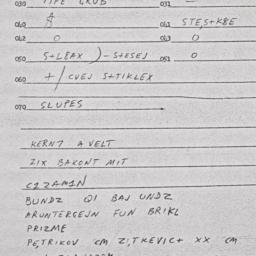 030 TIPE GRUB 031 —
040 8 041 STES+KBE
042 0 043 0
050 S+LBAX )-S+ESEJ 051 0
060 +/CVEJ S+TIKLEX
070 SLUPES
KERNT A VELT
ZIX BAKONT MIT
CZZAMEN
BUNDZ QI BAJ UNDZ
ARUNTERGEJN FUN BRIKL
PRIZME
PE,TRIKOV CM ZI,TKEVIC+ XX CM